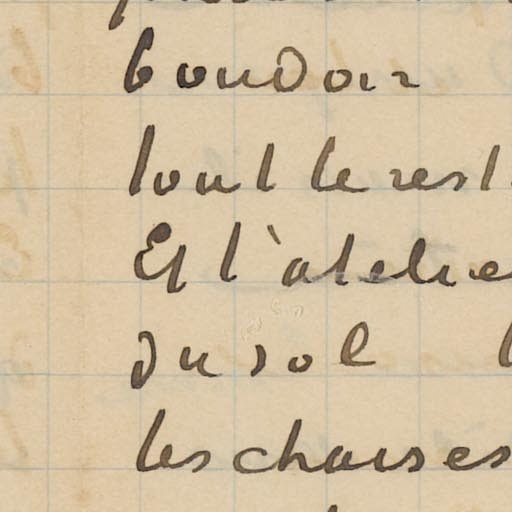 boudoir
tout le rest
Et l'atelie
du sol
les chaises